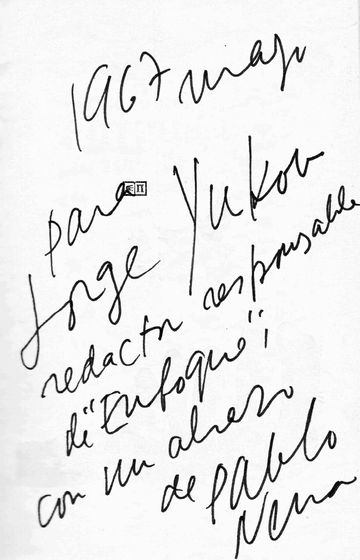 1967 mayo
para
Jorge Yukov
redactor responsable
de "Enfoque";
con un abrazo
de Pablo
Neru